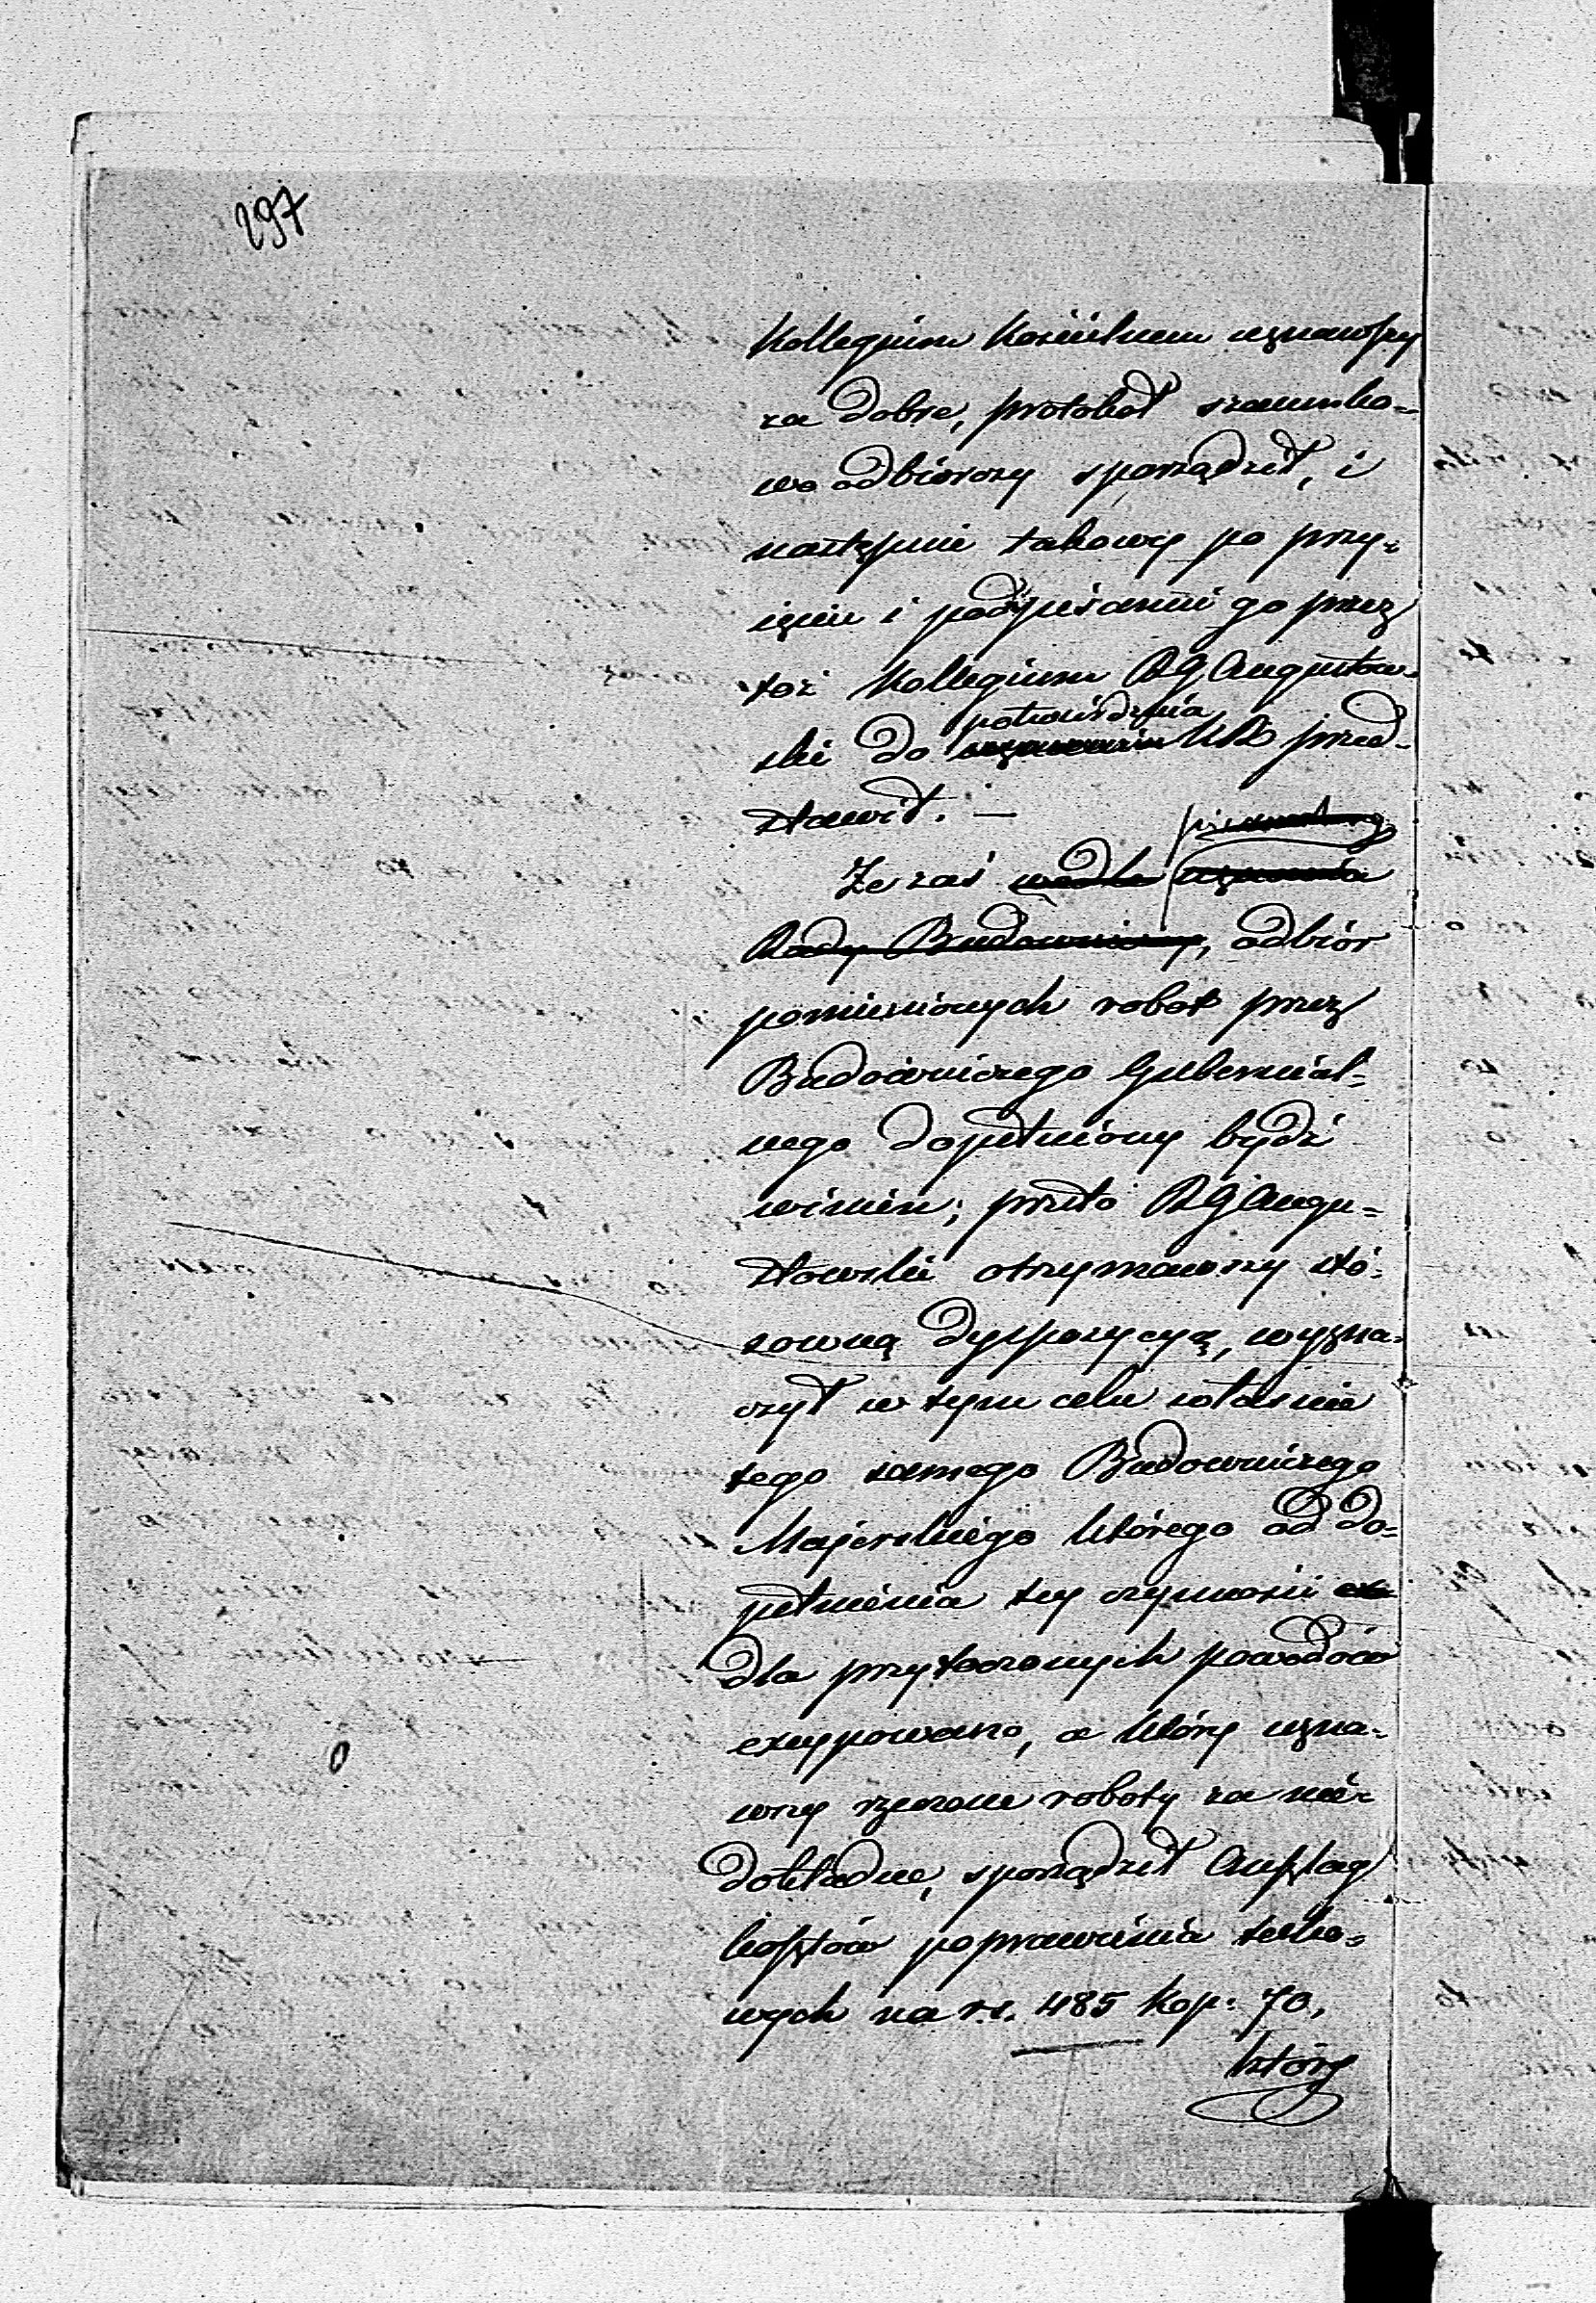 297
Kollegium Kościelnem uznawszy
za dobre, protokół szacunko=
wo odbiorczy sporządził, i
następnie takowy po przy=
ięciu i podpisaniu go przez
toż Kollegium RG Augustow=
potwierdzenia
ski do uznania KR przed=
stawił. —
Że zaś wedle uznania
Rady Budowniczej, odbiór
pomienionych robót przez
Budowniczego Gubernial=
nego dopełniony bydź
winien; przeto RG Augu=
stowski otrzymawszy sto=
sowną dyspozycyą, wyzna=
czył w tym celu właśnie
tego samego Budowniczego
Majerskiego którego od do=
pełnienia tey czynności
dla przytoczonych powodów
excypowano, a który uzna=
wszy rzeczone roboty za nie=
dokładne, sporządził Anszlag
kosztów poprawienia tako=
wych na r.s. 485 kop: 70,
który